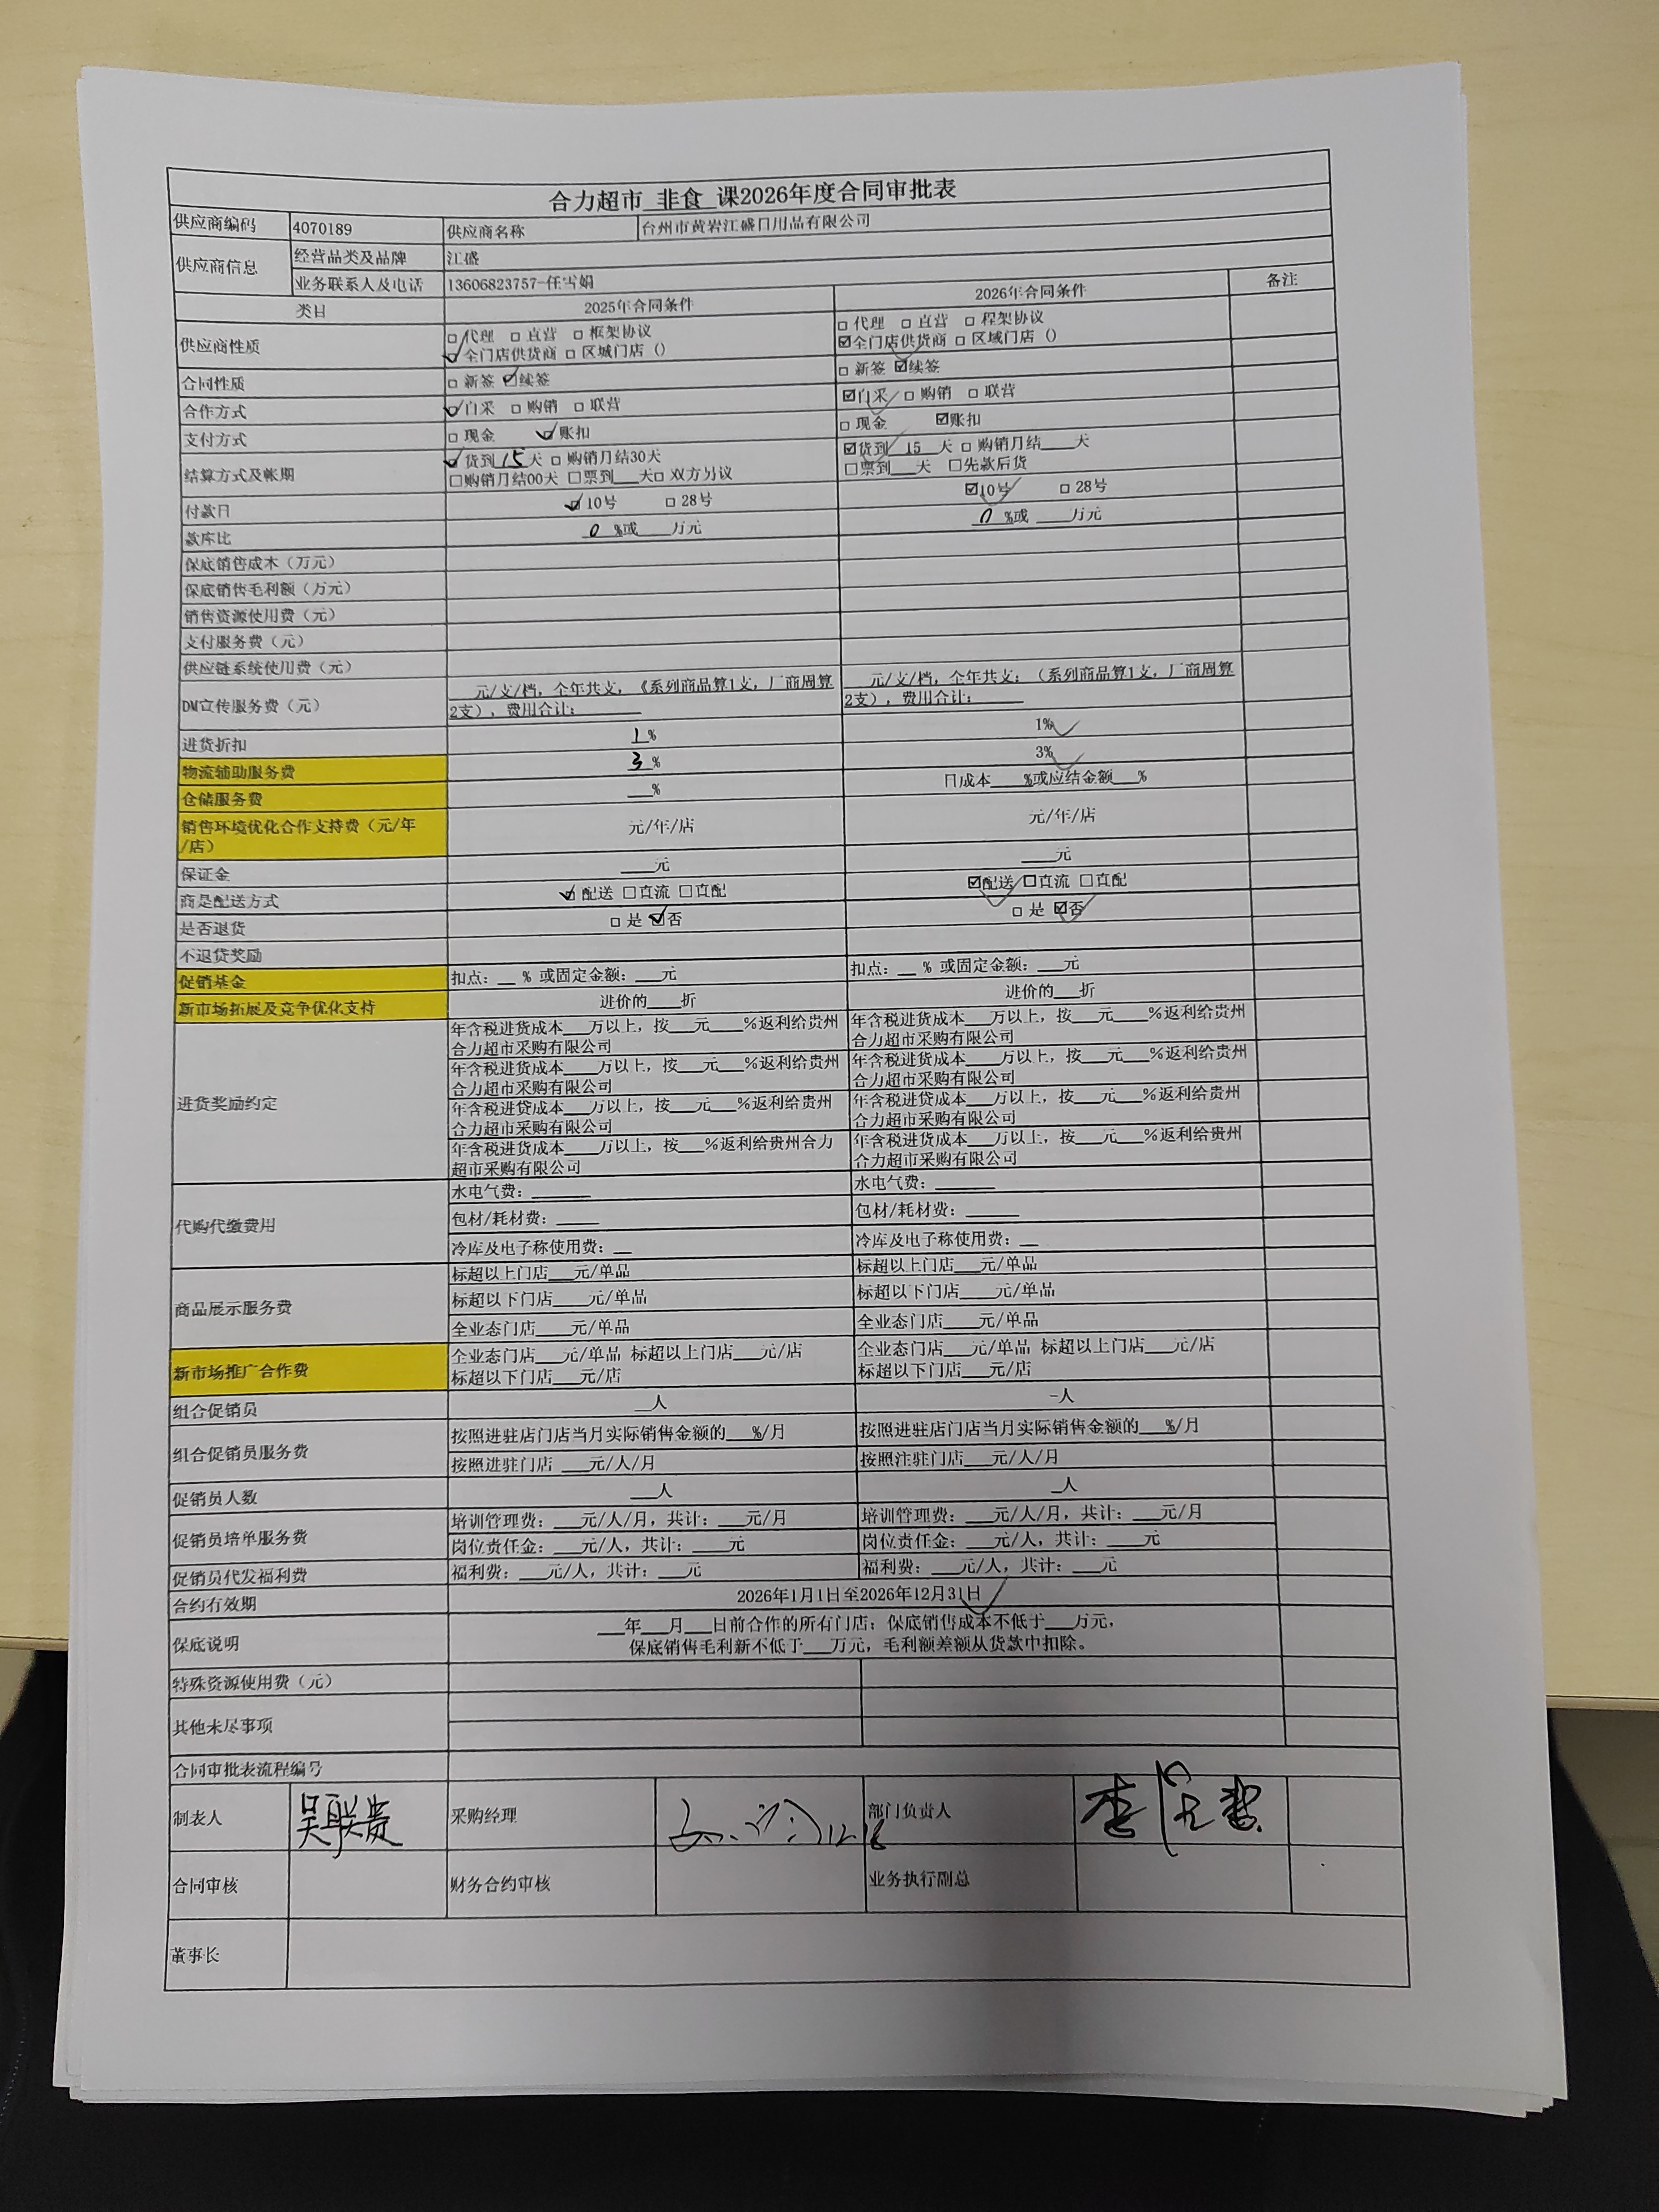 合力超市 非食 课2026年度合同审批表
供应商编码 4070189 供应商名称 台州市黄岩江盛日用品有限公司
供应商信息 经营品类及品牌 江盛
业务联系人及电话 13606823757-任雪娟
类目 2025年合同条件 2026年合同条件 备注
供应商性质 □代理 □直营 □框架协议 □代理 □直营 □程架协议
☑全门店供货商 □区城门店() ☑全门店供货商 □区域门店()
合同性质 □新签 ☑续签 □新签 ☑续签
合作方式 ☑自采 □购销 □联营 ☑自采 □购销 □联营
支付方式 □现金 ☑账扣 □现金 ☑账扣
结算方式及帐期 ☑货到15天 □购销月结30天 ☑货到 15 天 □购销月结___天
□购销月结00天 □票到___天□双方另议 □票到___天 □先款后货
付款日 ☑10号 □28号 ☑10号 □28号
款库比 0 %或___万元 0 %或___万元
保底销售成木(万元)
保底销售毛利额(万元)
销售资源使用费(元)
支付服务费(元)
供应链系统使用费(元)
DM宣传服务费(元) ___元/支/档, 全年共支, 《系列商品算1支, 厂商周算 ___元/支/档, 全年共支; (系列商品算1支, 厂商周算
2支), 费用合计:______ 2支), 费用合计:______
进货折扣 1% 1%
物流辅助服务费 3% 3%
仓储服务费 ___% 日成本___%或应结金额___%
销售环境优化合作支持费(元/年 元/年/店 元/年/店
/店)
保证金 ___元 ___元
商是配送方式 ☑配送 □直流 □直配 ☑配送 □直流 □直配
是否退货 □是 ☑否 □是 ☑否
不退货奖励
促销基金 扣点:__ % 或固定金额:___元 扣点:__ % 或固定金额:___元
新市场拓展及竞争优化支持 进价的___折 进价的___折
进货奖励约定 年含税进货成本___万以上, 按___元___%返利给贵州 年含税进货成本___万以上, 按___元___%返利给贵州
合力超市采购有限公司 合力超市采购有限公司
年含税进货成本___万以上, 按___元___%返利给贵州 年含税进货成本___万以上, 按___元___%返利给贵州
合力超市采购有限公司 合力超市采购有限公司
年含税进贷成本___万以上, 按___元___%返利给贵州 年含税进货成本___万以上, 按___元___%返利给贵州
合力超市采购有限公司 合力超市采购有限公司
年含税进货成本___万以上, 按___%返利给贵州合力 年含税进货成本___万以上, 按___元___%返利给贵州
超市采购有限公司 合力超市采购有限公司
代购代缴费用 水电气费:______ 水电气费:______
包材/耗材费:____ 包材/耗材费:_____
冷库及电子称使用费:__ 冷库及电子称使用费:__
商品展示服务费 标超以上门店___元/单品 标超以上门店___元/单品
标超以下门店____元/单品 标超以下门店____元/单品
全业态门店____元/单品 全业态门店____元/单品
新市场推广合作费 全业态门店___元/单品 标超以上门店___元/店 全业态门店___元/单品 标超以上门店___元/店
标超以下门店___元/店 标超以下门店___元/店
组合促销员 ___人 -人
组合促销员服务费 按照进驻店门店当月实际销售金额的___%/月 按照进驻店门店当月实际销售金额的___%/月
按照进驻门店 ___元/人/月 按照注驻门店___元/人/月
促销员人数 ___人 _人
促销员培单服务费 培训管理费:___元/人/月, 共计:___元/月 培训管理费:___元/人/月, 共计:___元/月
岗位责任金:___元/人, 共计:___元 岗位责任金:___元/人, 共计:___元
促销员代发福利费 福利费:___元/人, 共计:___元 福利费:___元/人, 共计:___元
合约有效期 2026年1月1日至2026年12月31日
保底说明 ___年___月___日前合作的所有门店: 保底销售成本不低于___万元,
保底销售毛利新不低于___万元, 毛利额差额从货款中扣除。
特殊资源使用费(元)
其他未尽事项
合同审批表流程编号
制表人 吴联贵 采购经理 12.18 部门负责人
合同审核 财务合约审核 业务执行副总
董事长